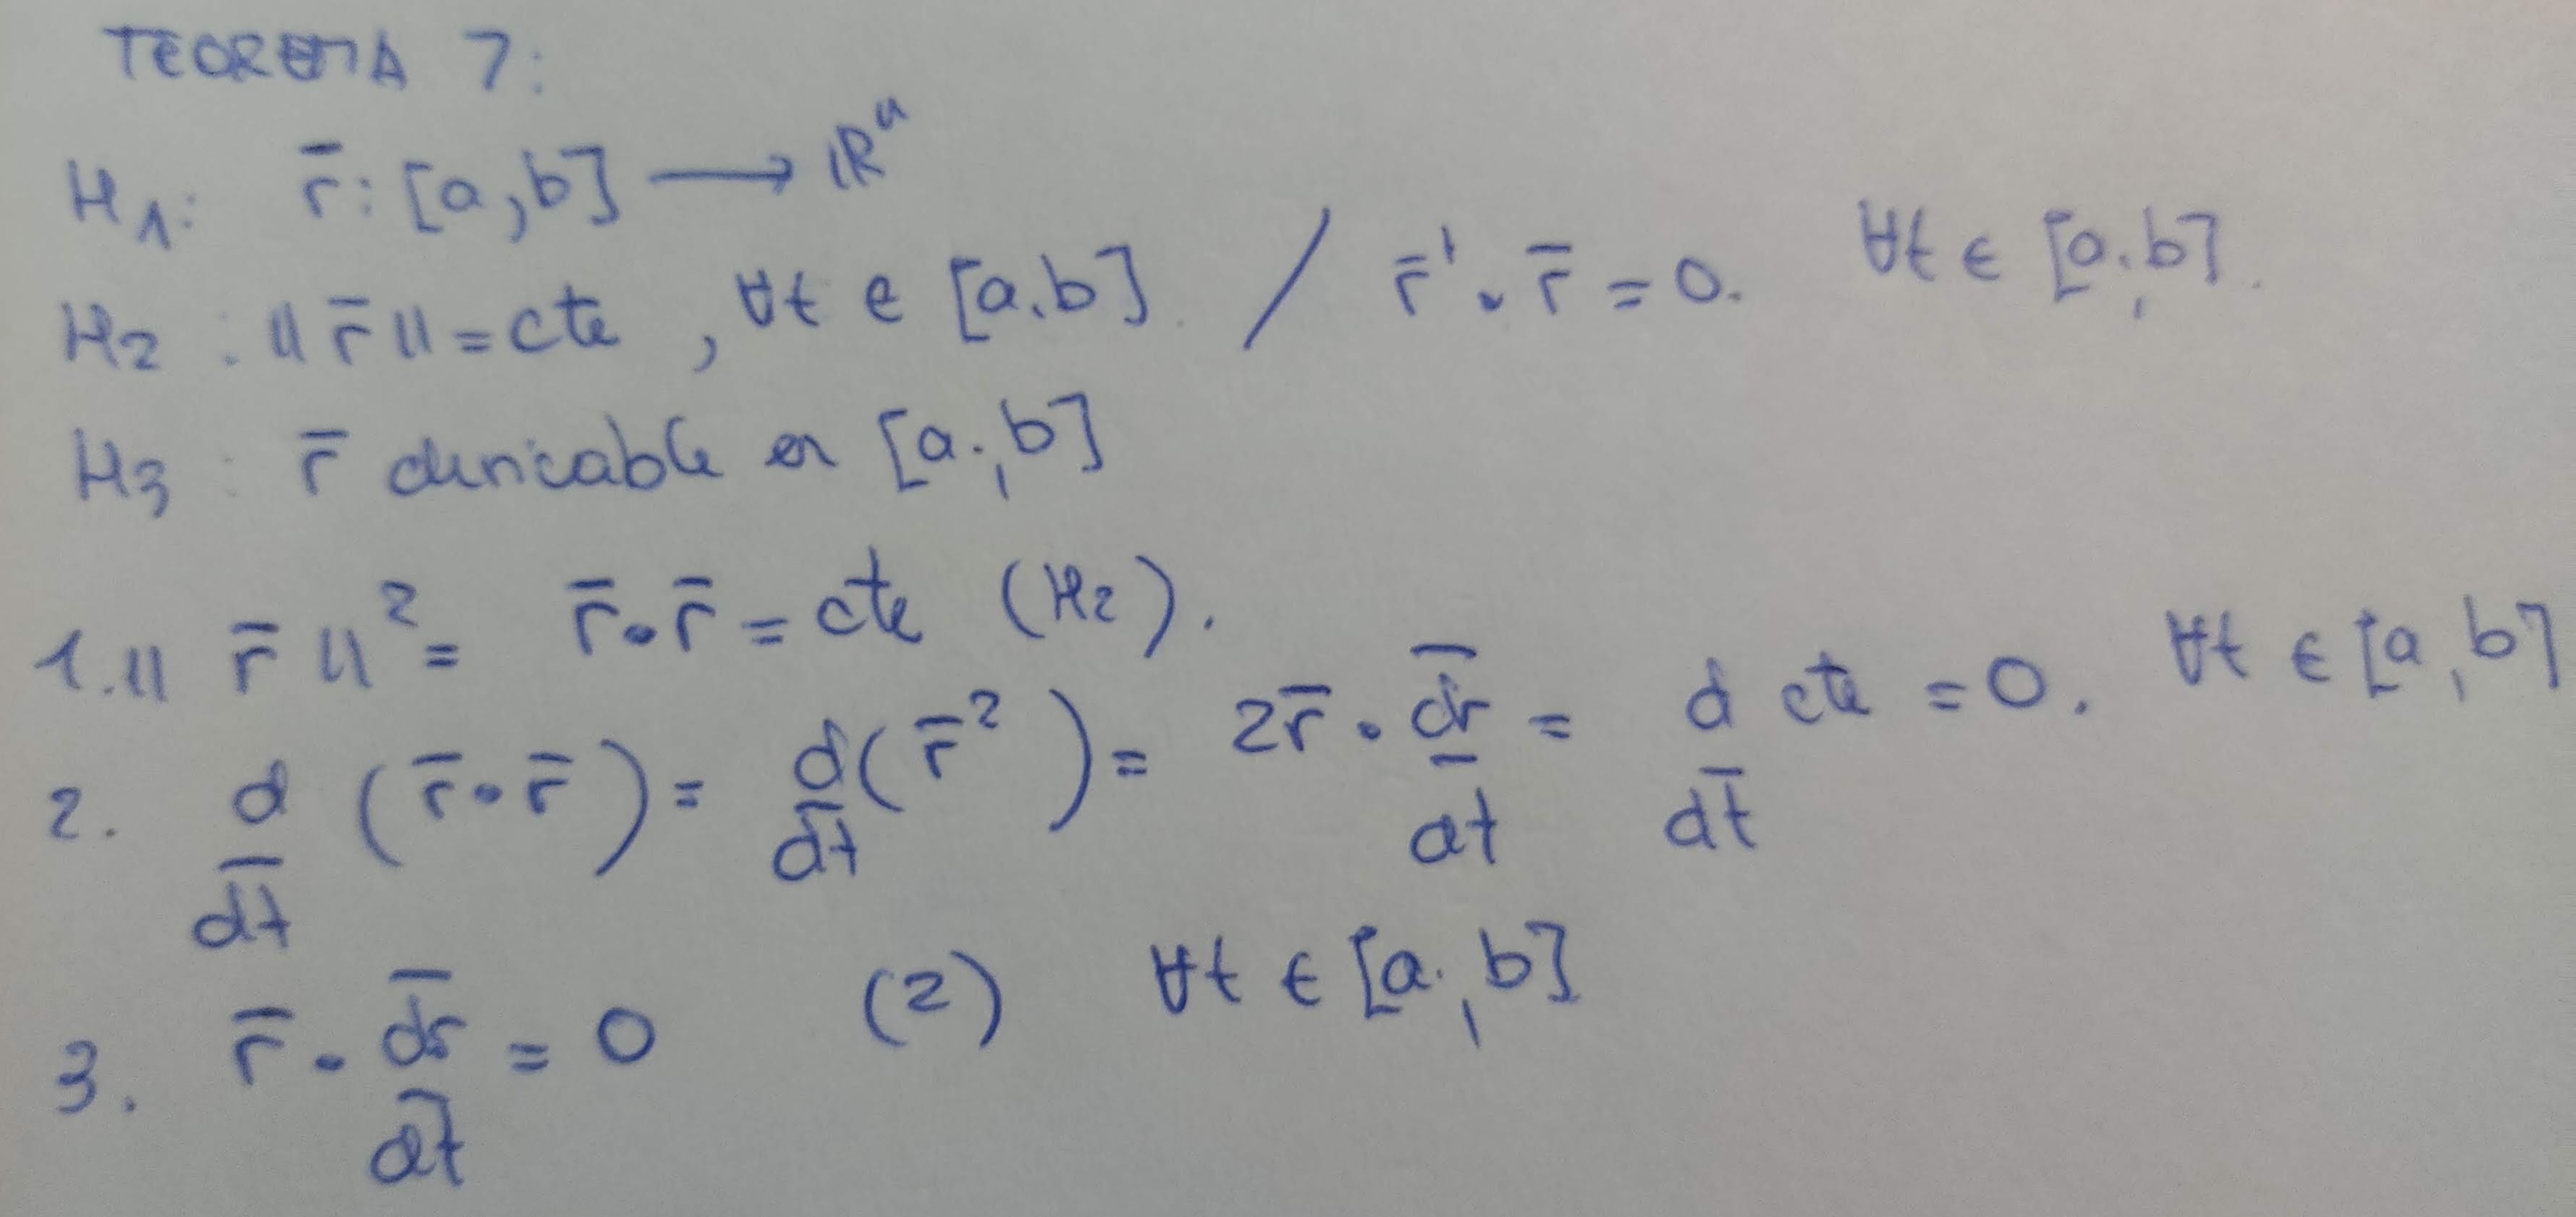 TEOREMA 7:
H1: r̄: [a,b] → ℝⁿ
H2: ||r̄||=cte, ∀t ∈ [a,b] / r̄'·r̄=0. ∀t ∈ [a,b].
H3: r̄ derivable en [a,b]
1. ||r̄||² = r̄·r̄ = cte (H2).
2. d/dt (r̄·r̄) = d/dt (r̄²) = 2r̄·dr̄/dt = d/dt cte = 0. ∀t ∈ [a,b]
3. r̄·dr̄/dt = 0 (2) ∀t ∈ [a,b]